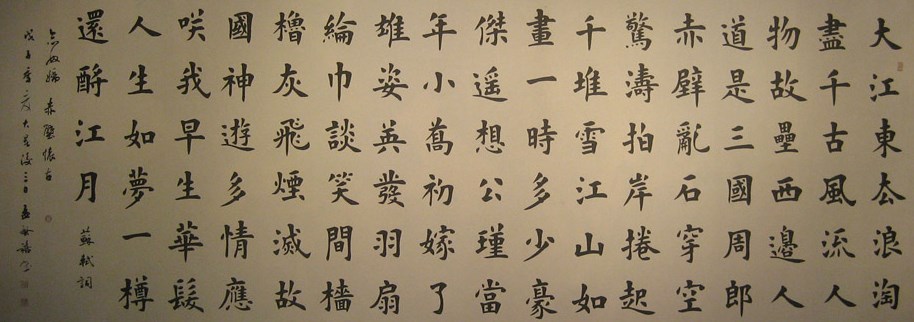 大江東厺浪淘
盡千古風流人
物故壘西邊人
道是三國周郎
赤壁亂石穿空
驚濤拍岸捲起
千堆雪江山如
畫一時多少豪
傑遥想公瑾當
年小喬初嫁了
雄姿英發羽扇
綸巾談笑間檣
櫓灰飛煙滅故
國神遊多情應
咲我早生華髮
人生如夢一樽
還酹江月 蘇軾詞
念奴嬌 赤壁懷古
戊子季